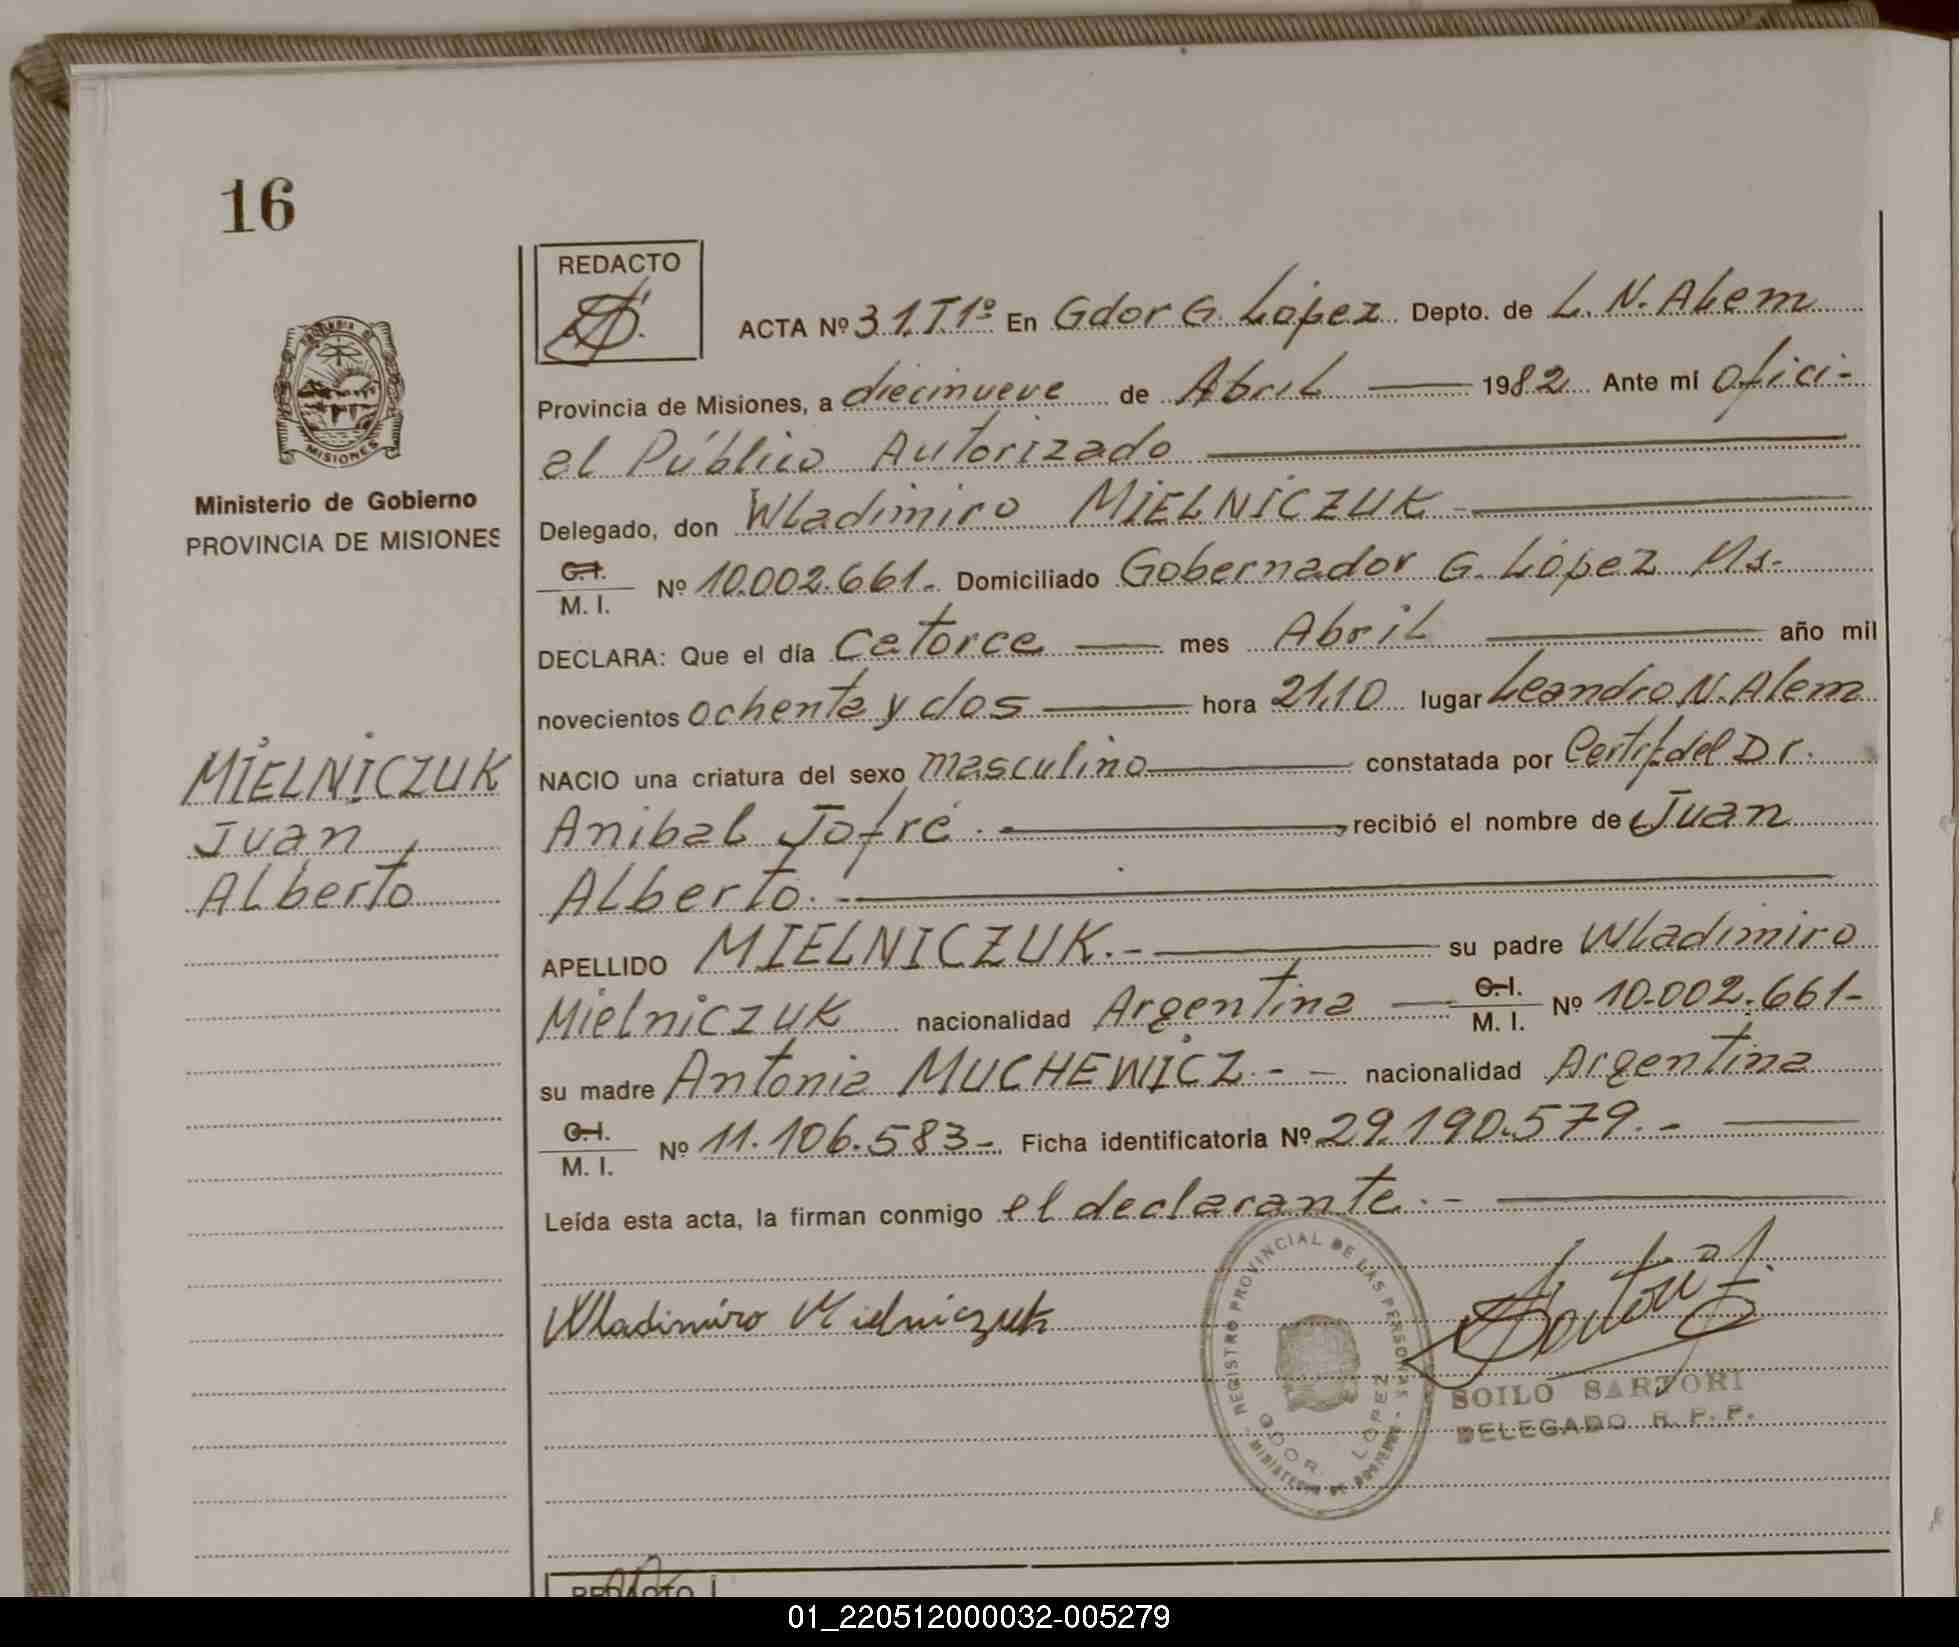 16
REDACTO
ACTA Nº 31.T1º En Gdor G. López Depto. de L. N. ALem
Provincia de Misiones, a diecinueve de Abril 1982 Ante mí ofici-
al Público Autorizado
Delegado, don Wladimiro MIELNICZUK
MISIONES
Ministerio de Gobierno
PROVINCIA DE MISIONES
C.I.
M. I. Nº 10.002.661- Domiciliado Gobernador G. López Ms.
DECLARA: Que el día Catorce mes Abril año mil
novecientos ochenta y dos hora 21,10 lugar Leandro N. Alem
NACIO una criatura del sexo masculino constatada por Certif. del Dr.
Anibal Jofré. recibió el nombre de Juan
Alberto.
MIELNICZUK
Juan
Alberto
APELLIDO MIELNICZUK.- su padre Wladimiro
Mielniczuk nacionalidad Argentina C.I.
M. I. Nº 10.002.661-
su madre Antonia MUCHEWICZ.- - nacionalidad Argentina
C.I.
M. I. Nº 11.106.583- Ficha identificatoria Nº 29.190.579.-
Leída esta acta, la firman conmigo el declarante.-
Wladimiro Mielniczuk
REGISTRO PROVINCIAL DE LAS PERSONAS - MINISTERIO DE GOBIERNO -
GDOR. LOPEZ
SOILO SARTORI
DELEGADO R. P. P.
REDACTO
01_220512000032-005279